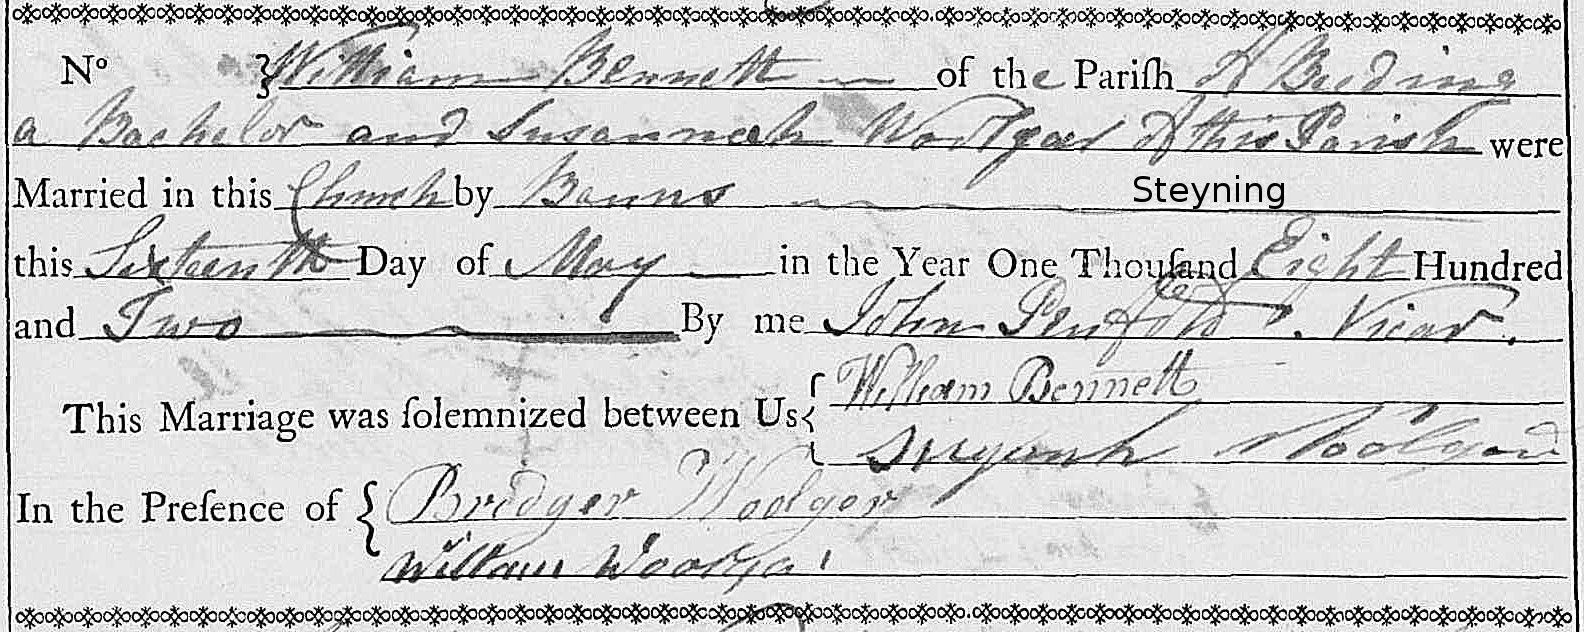 Nº } William Bennett of the Pariſh of Beeding
a Bachelor and Susannah Woolgar of this Parish were
Married in this Church by Banns Steyning
this Sixteenth Day of May in the Year One Thouſand Eight Hundred
and Two By me John Penfold. Vicar.
This Marriage was ſolemnized between Us { William Bennett
Woolgar
In the Preſence of { Bridger Woolger
William Woolgar